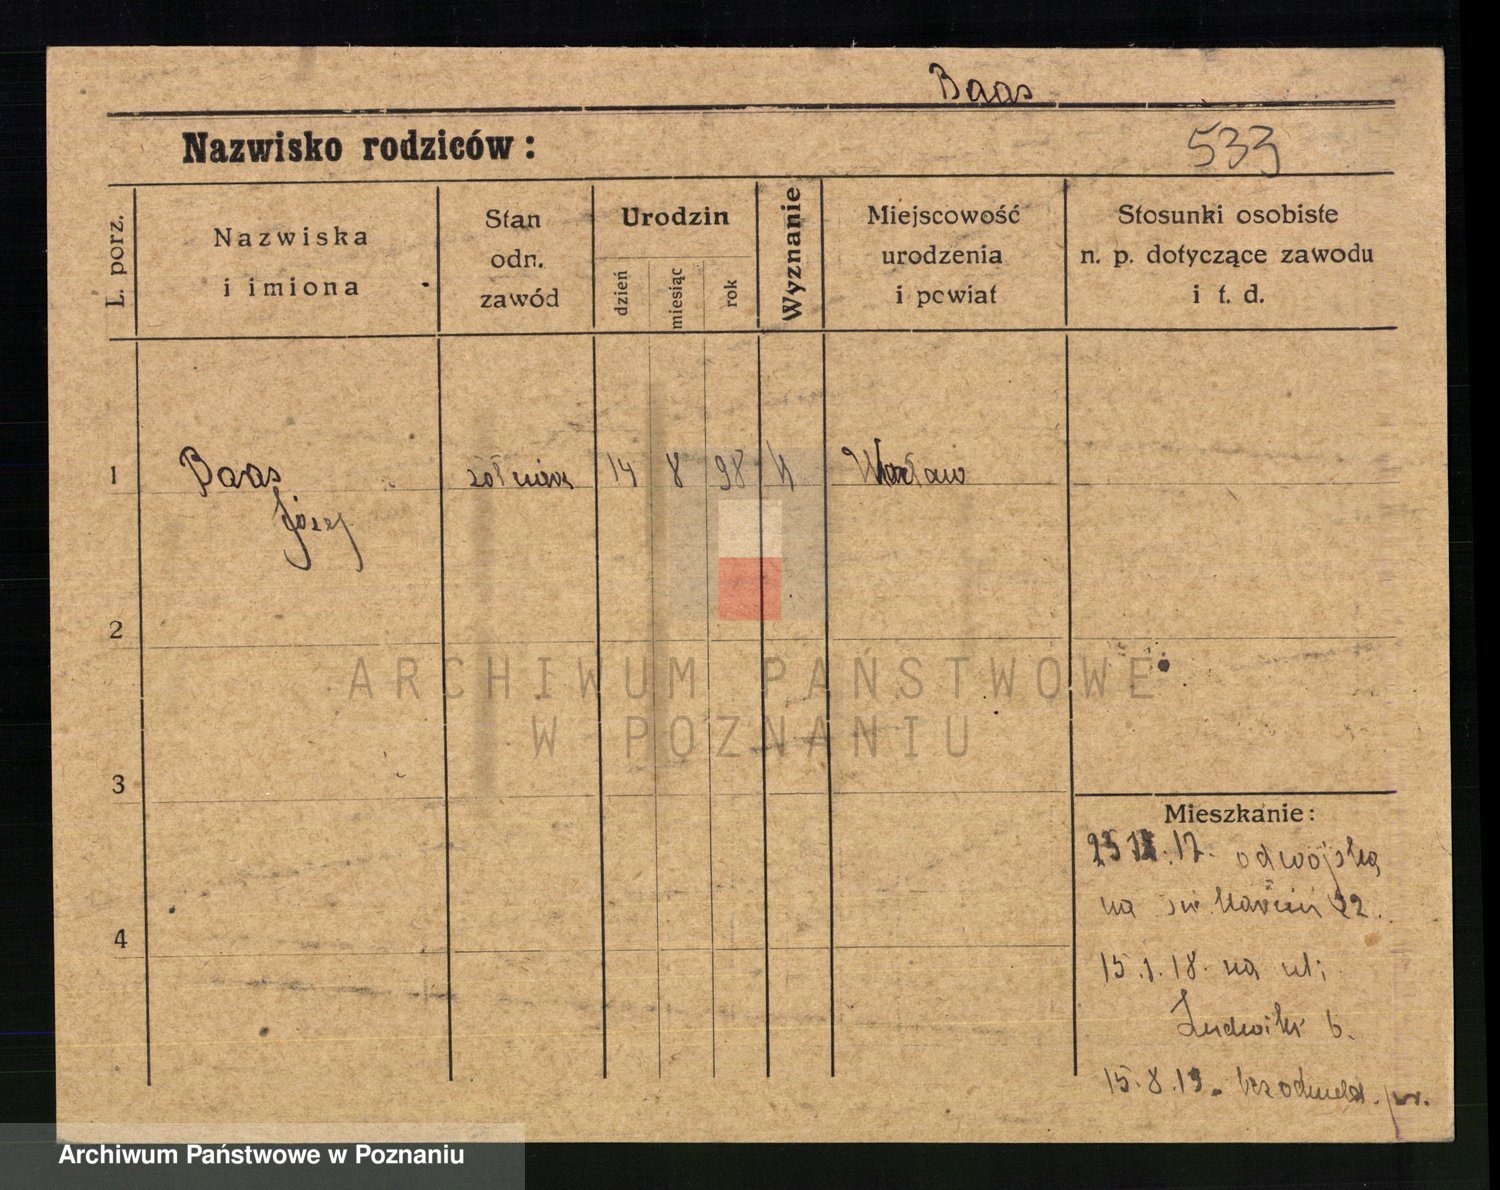 Baas
Nazwisko rodziców:
533
L. porz.
Nazwiska
i imiona
Stan
odn.
zawód
Urodzin
dzień
miesiąc
rok
Wyznanie
Miejscowość
urodzenia
i powiat
Stosunki osobiste
n. p. dotyczące zawodu
i t. d.
1
Baas
Józef
żołnierz
14
8
98
Wrocław
2
ARCHIWUM PAŃSTWOWE
W POZNANIU
3
Mieszkanie:
17. od wojska
na św. Marcin 22.
4
15.1.18. na ul:
Ludwiki 6.
15.8.19. bez odmeld.
Archiwum Państwowe w Poznaniu